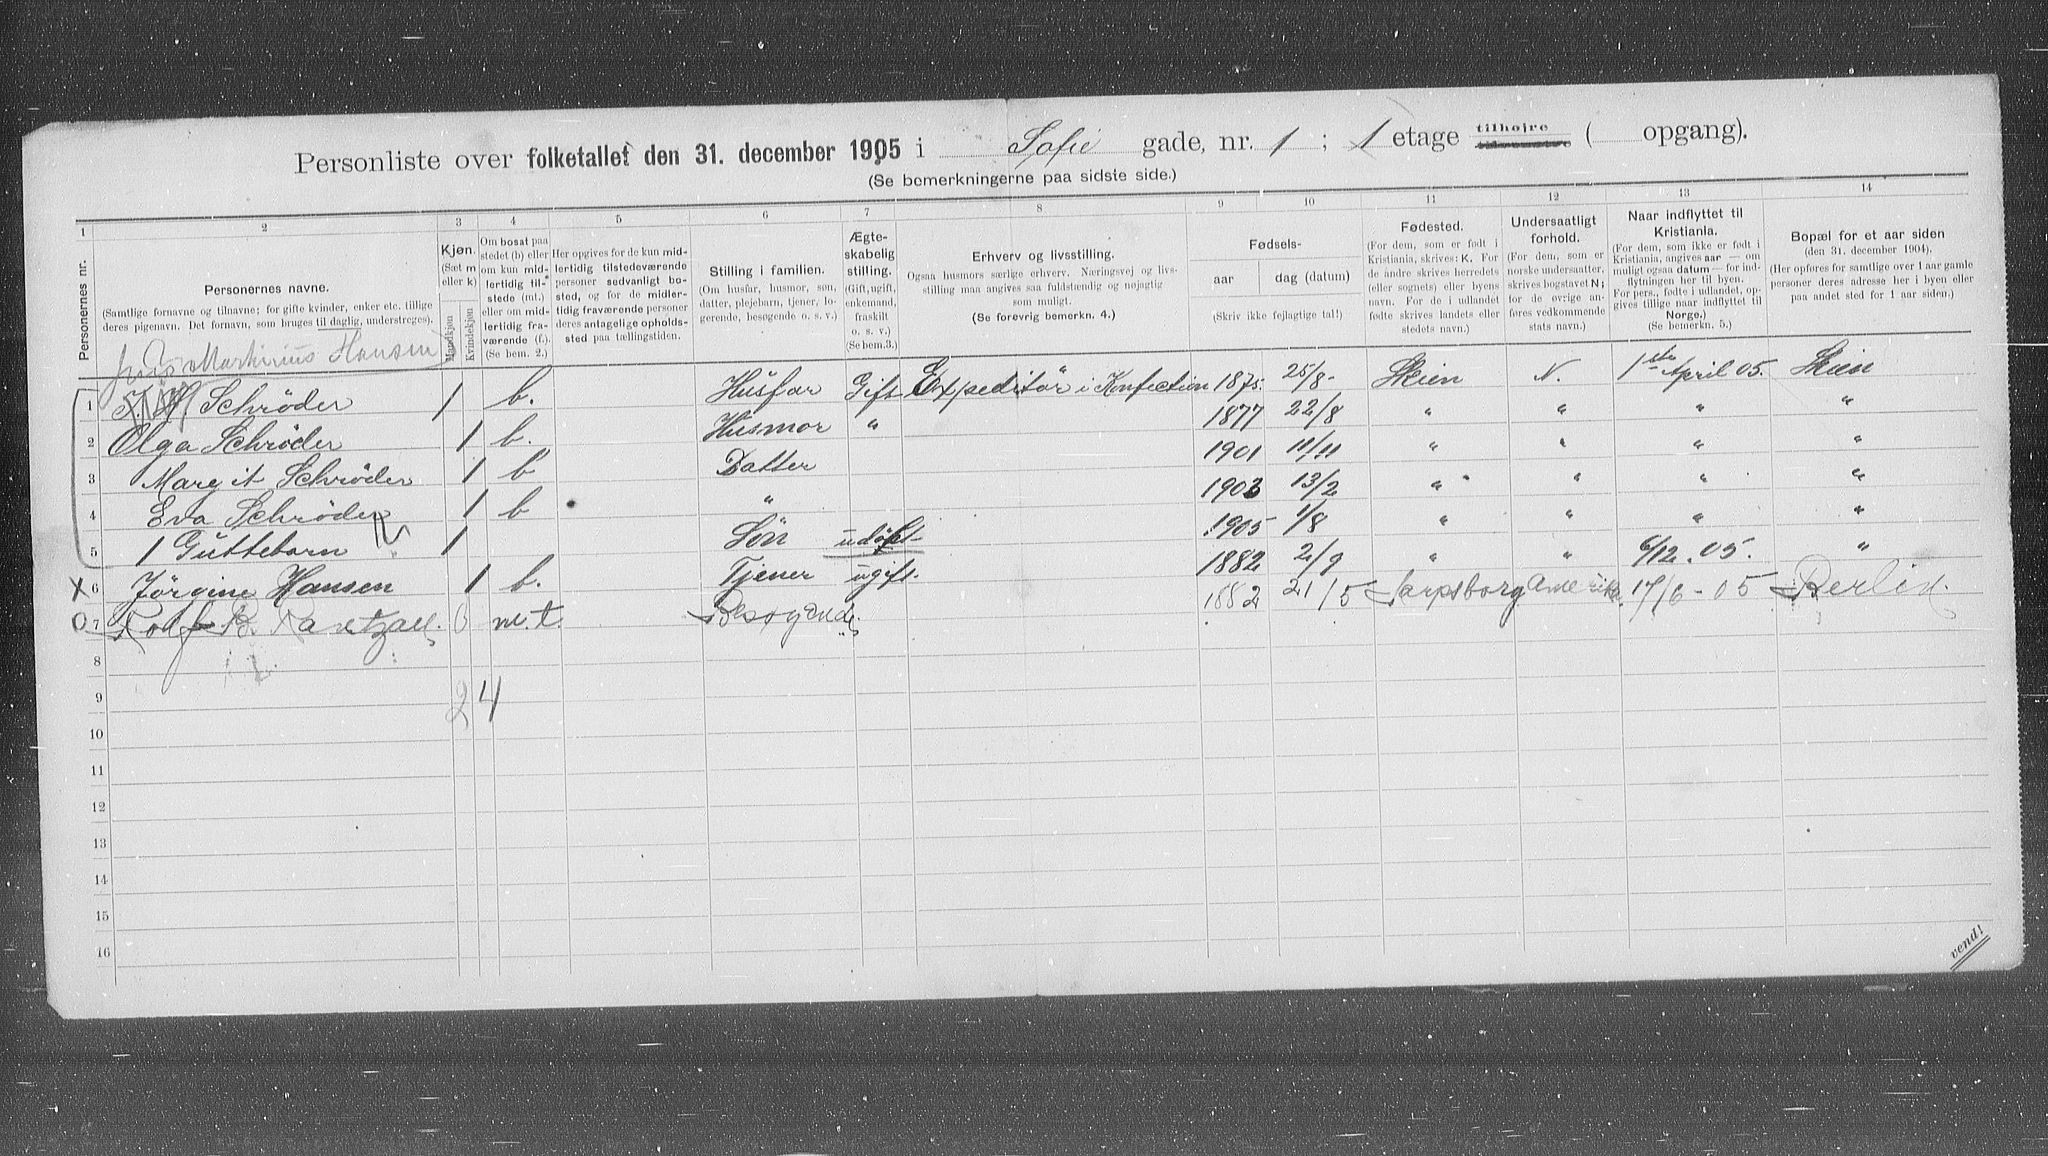 Personliste over folketallet den 31. december 1905 i Sofie gade, nr. 1 ; 1 etage tilhøjre ( opgang).
(Se bemerkningerne paa sidste side.)
1 2 3 4 5 6 7 8 9 10 11 12 13 14
Personernes nr.
Personernes navne.
(Samtlige fornavne og tilnavne; for gifte kvinder, enker etc. tillige deres pigenavn. Det fornavn, som bruges til daglig, understreges).
Kjøn.
(Sæt m eller k)
Mandkjøn
Kvindekjøn
Om bosat paa stedet (b) eller om kun midlertidig tilstede (mt.) eller om midlertidig fraværende (f.) (Se bem. 2.)
Her opgives for de kun midlertidig tilstedeværende personer sedvanligt bosted, og for de midlertidig fraværende personer deres antagelige opholdssted paa tællingstiden.
Stilling i familien.
(Om husfar, husmor, søn, datter, plejebarn, tjener, logerende, besøgende o. s. v.)
Ægteskabelig stilling.
(Gift, ugift, enkemand, fraskilt o. s. v.)
(Se bem.3.)
Erhverv og livsstilling.
Ogsaa husmors særlige erhverv. Næringsvej og livsstilling maa angives saa fuldstændig og nøjagtig som muligt.
(Se forøvrig bemerkn. 4.)
Fødsels-
aar
dag (datum)
(Skriv ikke fejlagtige tal!)
Fødested.
(For dem, som er født i Kristiania, skrives: K. For de andre skrives herredets (eller sognets) eller byens navn. For de i udlandet fødte skrives landets eller stedets navn.)
Undersaatligt forhold.
(For dem, som er norske undersaatter, skrives bogstavet N; for de øvrige anføres vedkommende stats navn.)
Naar indflyttet til Kristiania.
(For dem, som ikke er født i Kristiania, angives aar — om muligt ogsaa datum — for indflytningen her til byen. For pers., fødte i udlandet, opgives tillige naar indflyttet til Norge.)
(Se bemerkn. 5.)
Bopæl for et aar siden
(den 31. december 1904).
(Her opføres for samtlige over 1 aar gamle personer deres adresse her i byen eller paa andet sted for 1 aar siden.)
Martinius Hansen
1 Schrøder 1 b. Husfar Gift Expeditør i Konfection 1875. 25/8- Skien N. 1ste April 05. Skien
2 Olga Schrøder 1 b. Husmor " 1877 22/8 " " " "
3 Margit Schrøder 1 b Datter 1901 11/11 " " " "
4 Eva Schrøder 1 b " 1903 13/2 " " " "
5 1 Guttebarn 1 Søn udøbt 1905 1/8 " " " "
X 6 Jørgine Hansen 1 b. Tjener ugift. 1882 2/9 " " 6/12. 05. "
O. 7 Rolf B. 0 m.t. Besøgende 1882 21/5 Sarpsborg Amerika. 17/6 - 05 Berlin.
8
9 2 4
10
11
12
13
14
15
16
vend!